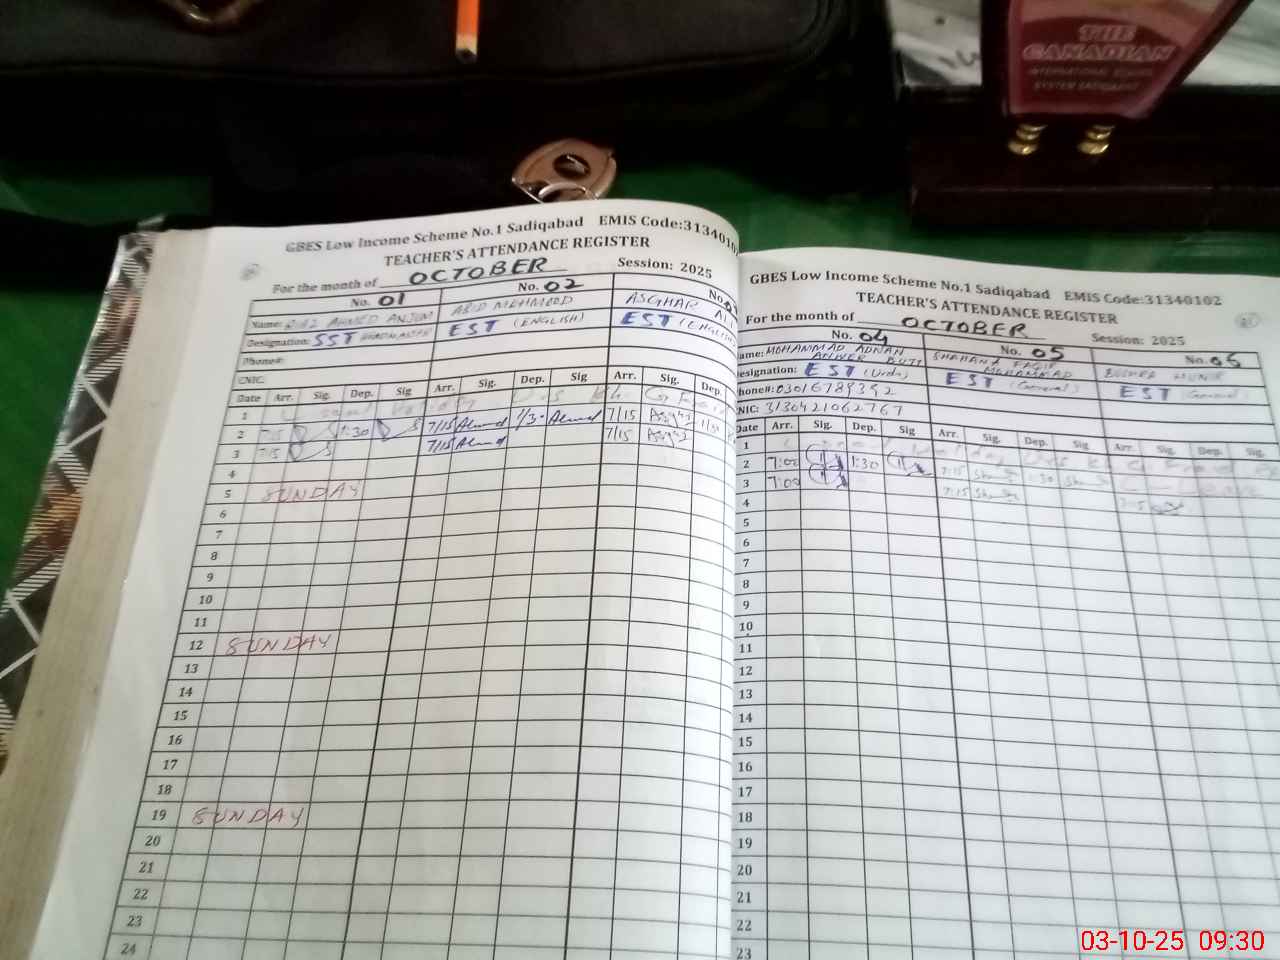 THE
CANADIAN
INTERNATIONAL SCHOOL
SYSTEM SADIQABAD
GBES Low Income Scheme No.1 Sadiqabad EMIS Code:3134010
TEACHER'S ATTENDANCE REGISTER
For the month of OCTOBER Session: 2025
No. 01 No. 02 No.
Name: AHMED ANJUM ABID MEHMOOD ASGHAR ALI
Designation: SST EST (ENGLISH) EST (ENGLISH)
Phone#:
CNIC:
Date Arr. Sig. Dep. Sig Arr. Sig. Dep. Sig Arr. Sig. Dep.
1
2 7:15 1:30 7/15 1/3- 7/15
3 7:15 7/15 7/15
4
5 SUNDAY
6
7
8
9
10
11
12 SUNDAY
13
14
15
16
17
18
19 SUNDAY
20
21
22
23
24
GBES Low Income Scheme No.1 Sadiqabad EMIS Code:31340102
TEACHER'S ATTENDANCE REGISTER
For the month of OCTOBER Session: 2025
No. 04 No. 05 No. 06
ame: MOHAMMAD ADNAN ANWER BUTT SHAHANA FAQIR MUHAMMAD BUSHRA
esignation: EST (Urdu) EST (General) EST (General)
hone#: 03016789392
CNIC: 3130421062767
Date Arr. Sig. Dep. Sig Arr. Sig. Dep. Sig Arr. Sig. Dep. Sig
1
2 7:00 1:30 7:15 1:30
3 7:00 7:15 7:15
4
5
6
7
8
9
10
11
12
13
14
15
16
17
18
19
20
21
22
23
03-10-25 09:30